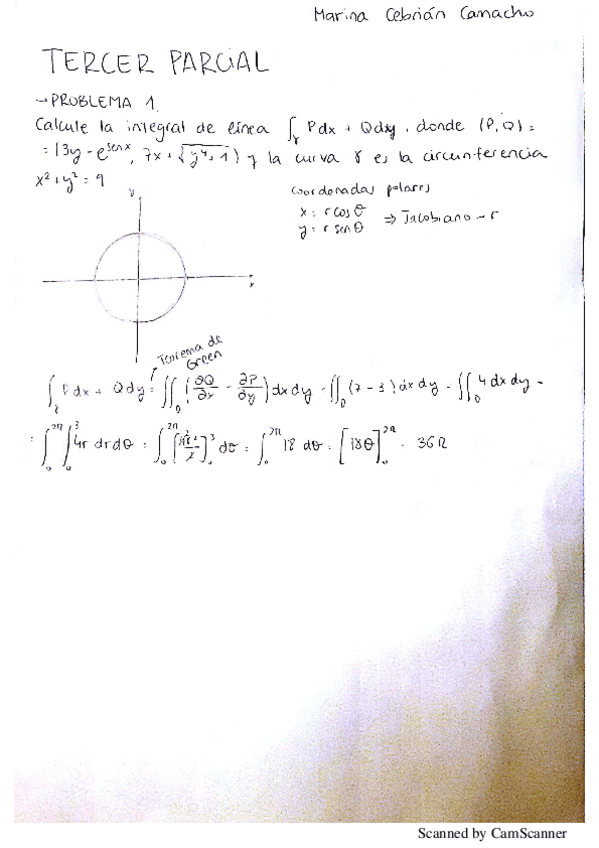 Marina Cebrián Camacho
TERCER PARCIAL
→ PROBLEMA 1.
Calcule la integral de línea ∫γ Pdx + Qdy, donde (P,Q) =
= (3y - e^senx, 7x + √(y⁴+1)) y la curva γ es la circunferencia
x² + y² = 9
y
Coordenadas polares
x = r cos θ
y = r sen θ
⇒ Jacobiano = r
Teorema de Green
∫γ Pdx + Qdy = ∬D (∂Q/∂x - ∂P/∂y) dx dy = ∬D (7-3) dx dy = ∬D 4 dx dy =
= ∫₀^2π ∫₀^3 4r dr dθ = ∫₀^2π [ ]₀^3 dθ = ∫₀^2π 18 dθ = [18θ]₀^2π = 36π
Scanned by CamScanner